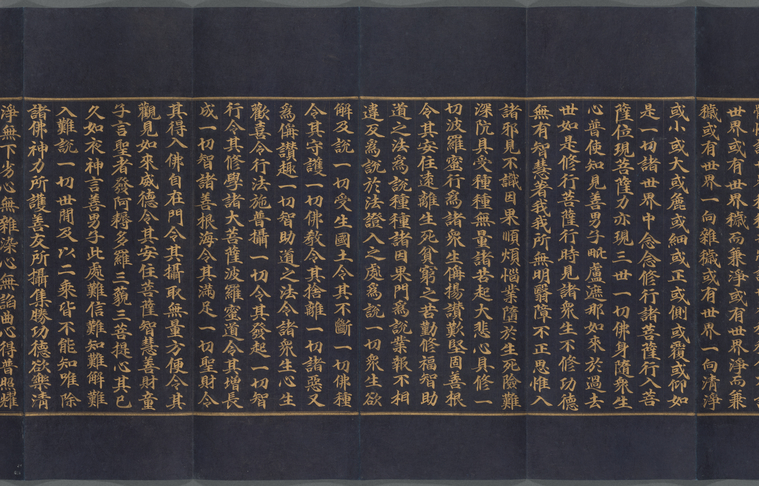 世界或有世界穢而兼淨或有世界淨而兼
穢或有世界一向雜穢或有世界一向清淨
或小或大或麁或細或正或側或覆或仰如
是一切諸世界中念念修行諸菩薩行入菩
薩位現菩薩力亦現三世一切佛身隨衆生
心普使知見善男子毗盧遮那如來於過去
世如是修行菩薩行時見諸衆生不修功德
無有智慧著我我所無明翳障不正思惟入
諸邪見不識因果順煩惱業墮於生死險難
深阬具受種種無量諸苦起大悲心具修一
切波羅蜜行爲諸衆生稱揚讚歎堅固善根
令其安住遠離生死貧窮之苦勤修福智助
道之法爲説種種諸因果門爲説業報不相
違反爲説於法證入之處爲説一切衆生欲
解及説一切受生國土令其不斷一切佛種
令其守護一切佛教令其捨離一切諸惡又
爲稱讚趣一切智助道之法令諸衆生心生
歡喜令行法施普攝一切令其發起一切智
行令其修學諸大菩薩波羅蜜道令其增長
成一切智諸善根海令其滿足一切聖財令
其得入佛自在門令其攝取無量方便令其
觀見如來威德令其安住菩薩智慧善財童
子言聖者發阿耨多羅三藐三菩提心其已
久如夜神言善男子此處難信難知難解難
入難説一切世間及以二乘皆不能知唯除
諸佛神力所護善友所攝集勝功德欲樂清
淨無下劣心無雜染心無諂曲心得普照耀